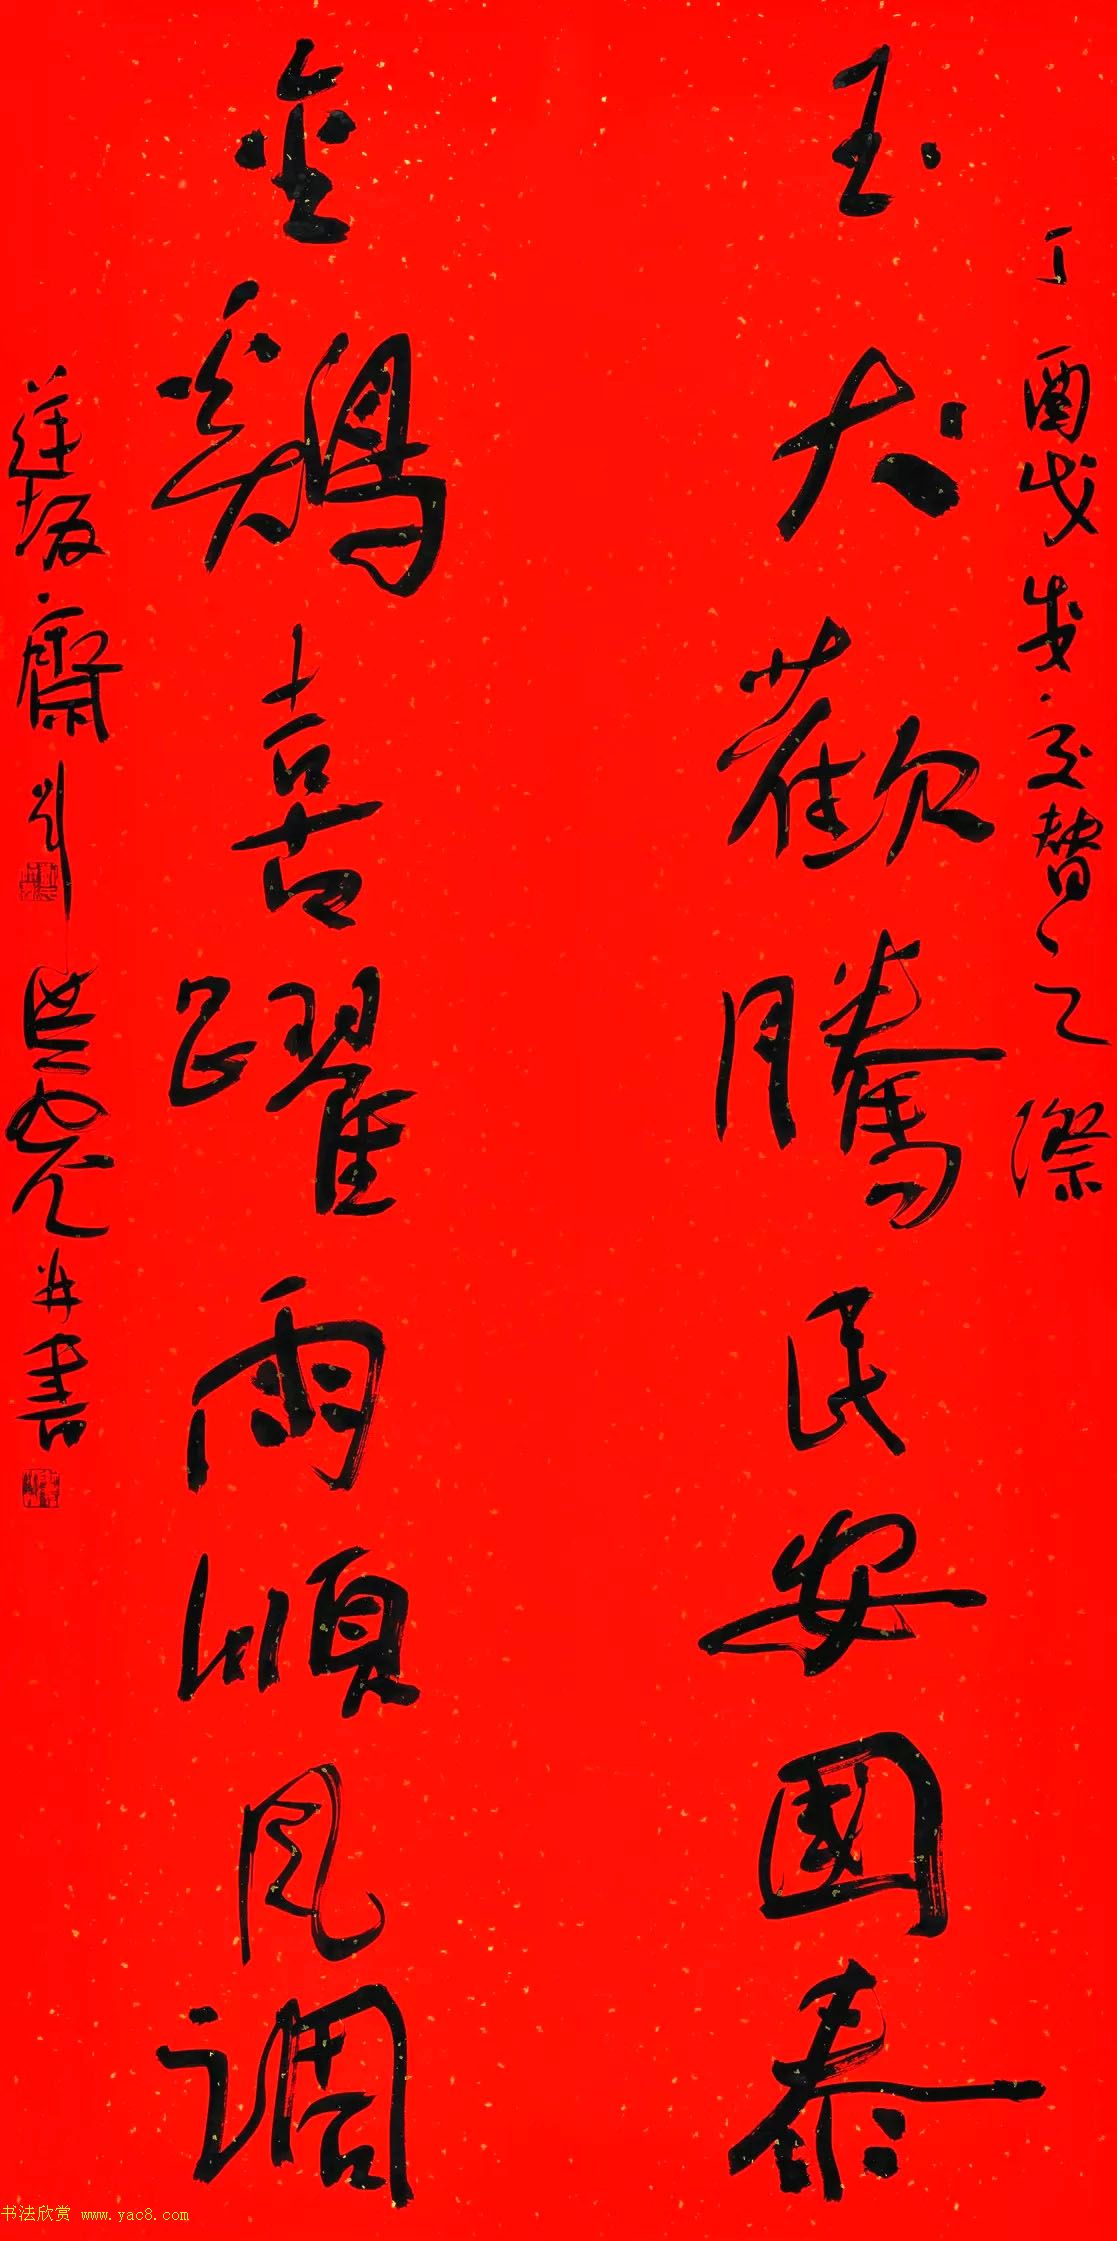 丁酉戊戌交替之際
玉犬歡騰民安國泰
金鷄喜躍雨順風调
蓮墢齋劉
并書
书法欣赏 www.yac8.com